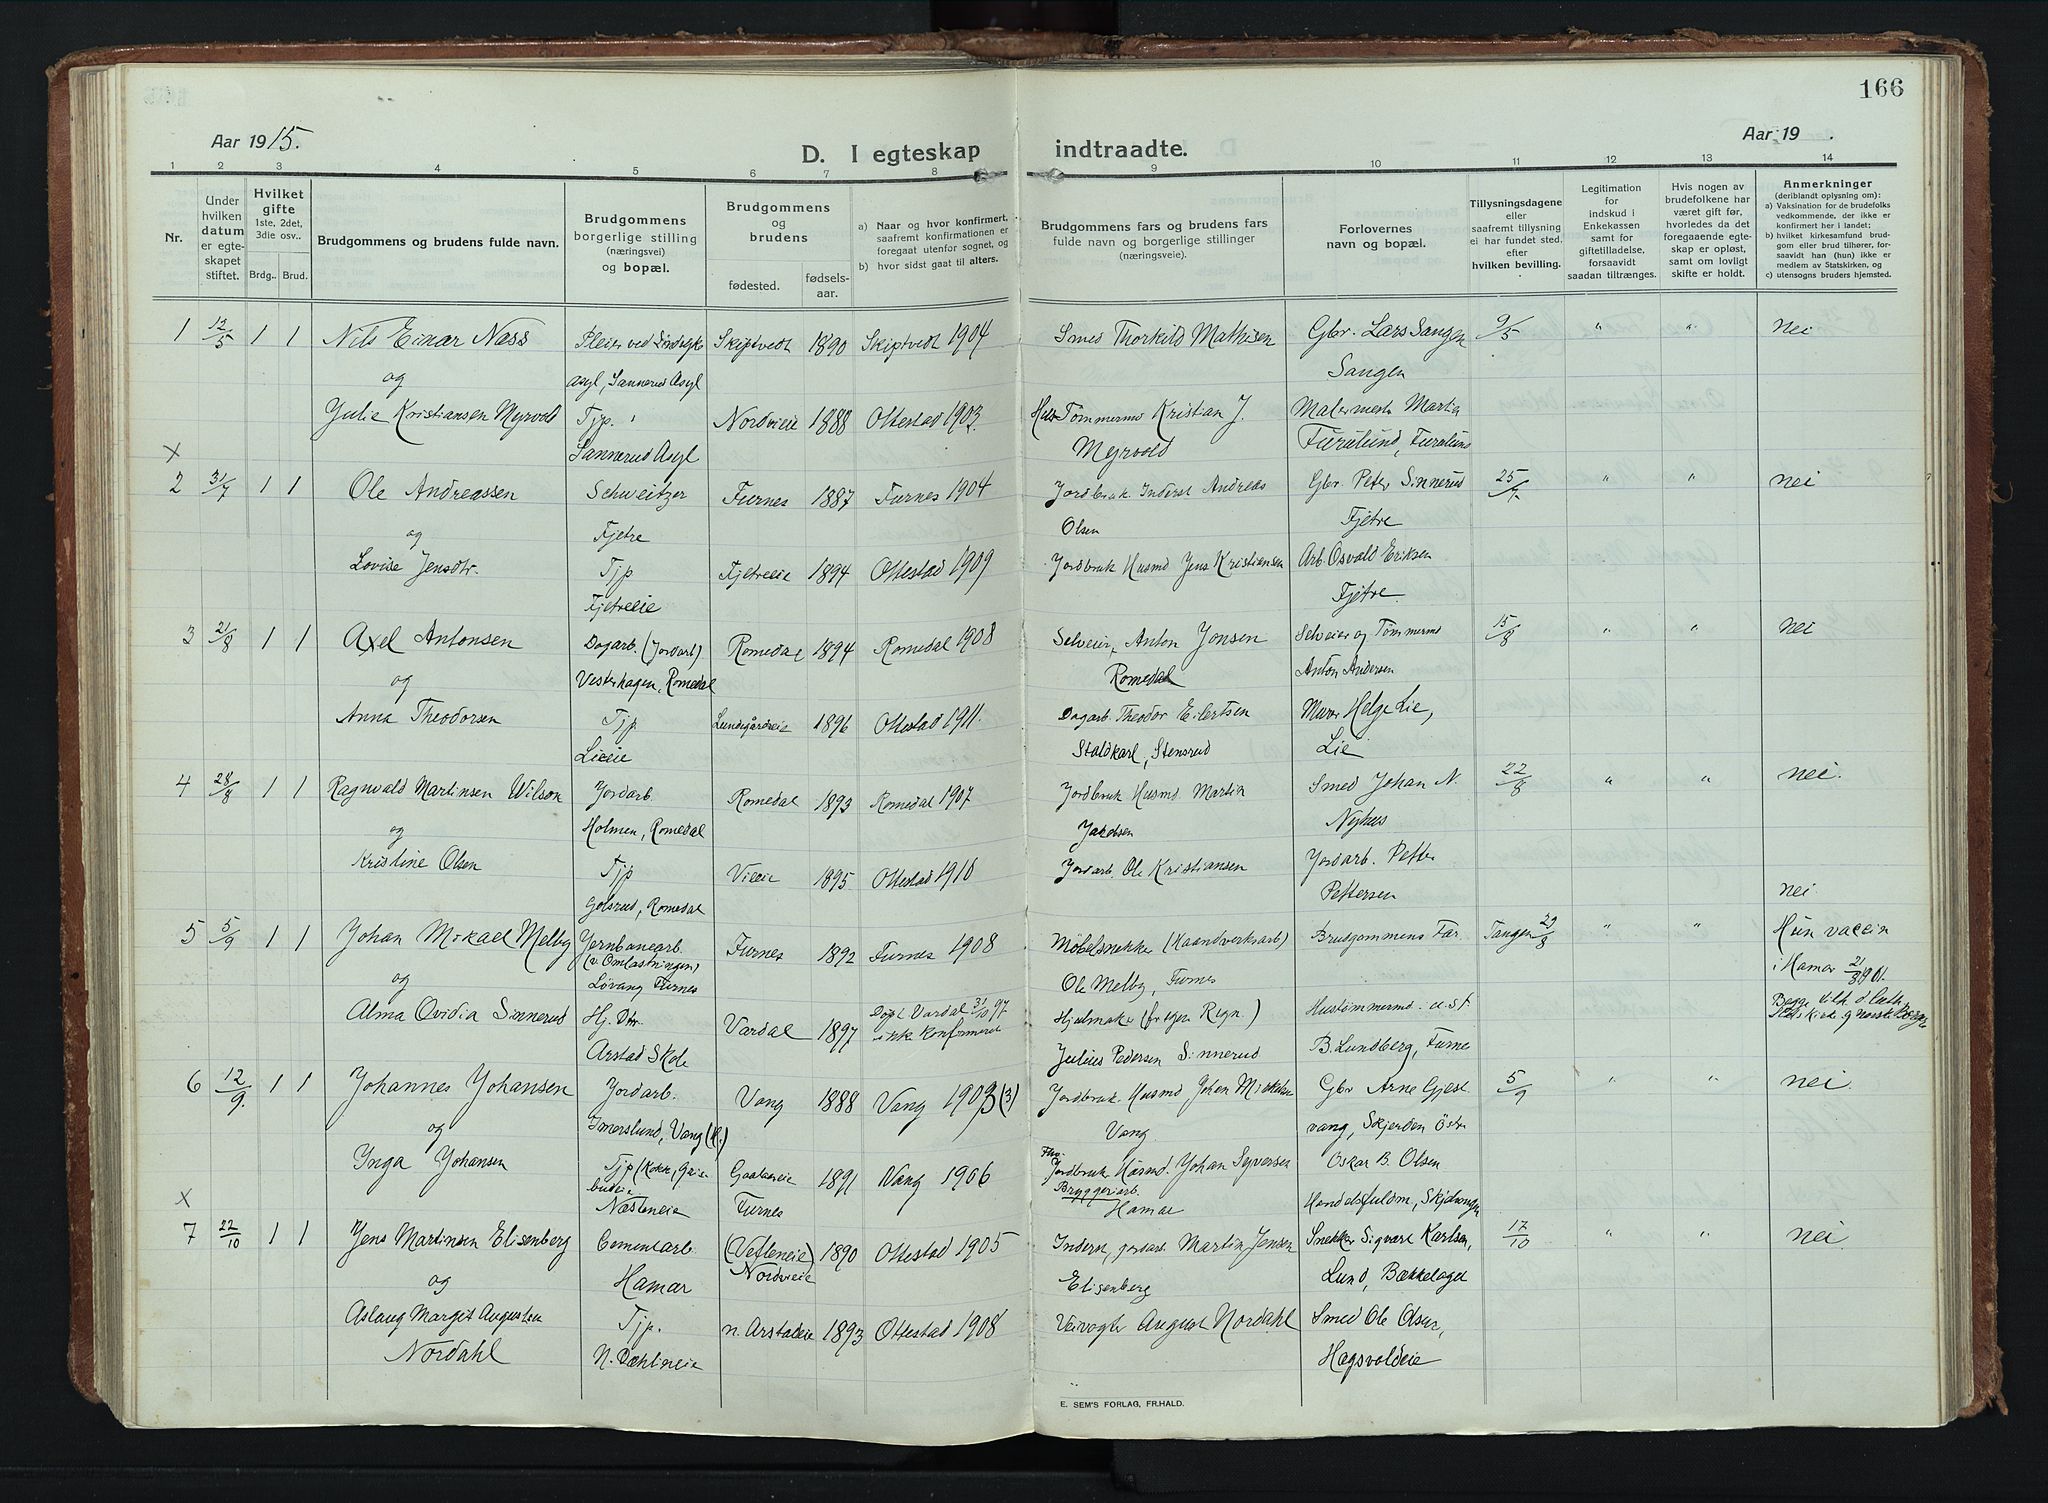 166
Aar 1915.
D. I egteskap indtraadte.
Aar 19 .
1 2 3 4 5 6 7 8 9 10 11 12 13 14
Nr.
Under
hvilken
datum
er egte-
skapet
stiftet.
Hvilket
gifte
1ste, 2det,
3die osv..
Brdg.. Brud.
Brudgommens og brudens fulde navn.
Brudgommens
borgerlige stilling
(næringsvei)
og bopæl.
Brudgommens
og
brudens
fødested.
fødsels-
aar.
a) Naar og hvor konfirmert,
saafremt konfirmationen er
foregaat utenfor sognet, og
b) hvor sidst gaat til alters.
Brudgommens fars og brudens fars
fulde navn og borgerlige stillinger
(næringsveie).
Forlovernes
navn og bopæl.
Tillysningsdagene
eller
saafremt tillysning
ei har fundet sted.
efter
hvilken bevilling.
Legitimation
for
indskud i
Enkekassen
samt for
giftetilladelse,
forsaavidt
saadan tiltrænges.
Hvis nogen av
brudefolkene har
været gift før,
hvorledes da det
foregaaende egte-
skap er opløst,
samt om lovligt
skifte er holdt.
Anmerkninger
(deriblandt oplysning om):
a) Vaksination for de brudefolks
vedkommende, der ikke er
konfirmert her i landet;
b) hvilket kirkesamfund brud-
gom eller brud tilhører, for-
saavidt han (hun) ikke er
medlem av Statskirken, og
c) utensogns bruders hjemsted.
1 12/5 1 1 Nils Einar Næss Pleier ved Sindssyke Skiptvedt 1890 Skiptvedt 1904 Smed Thorkild Mathisen Gbr. Lars Sangen 9/5 " " nei
og asyl, Sannerud Asyl Sangen
Julie Kristiansen Myrvold Tjp. Nordvieie 1888 Ottestad 1903. Tømmermd Kristian J. Malermester Martin
X Sannerud Asyl Myrvold Furulund, Furulund
2 31/7 1 1 Ole Andreassen Schweitzer Furnes 1887 Furnes 1904 Jordbruk. Inderst Andreas Gbr. Peter Sinnerud 25/7 " " nei
og Fjetre Olsen Fjetre
Lovise Jensdtr. Tjp Fjetreeie 1894 Ottestad 1909 Jordbruk Husmd Jens Kristiansen Arb. Osvald Eriksen
Fjetreeie Fjetre.
3 21/8 1 1 Axel Antonsen Dagarb. (Jordarb) Romedal 1894 Romedal 1908 Selveier, Anton Jonsen Selveier og Tømmermd 15/8 " " nei
og Vesterhagen, Romedal Romedal Anton Andersen
Anna Theodorsen Tjp. Lundgårdeie 1896 Ottestad 1911. Dagarb. Theodor Eilertsen Murer Helge Lie,
Lieeie Staldkarl, Stensrud Lie
4 28/8 1 1 Ragnvald Martinsen Wilson Jordarb. Romedal 1893 Romedal 1907 Jordbruk Husmd. Martin Smed Johan N. 22/8 " " nei.
og Holmen, Romedal Jakobsen Nyhus
Kristine Olsen Tjp Vieeie 1895 Ottestad 1910 Jordarb. Ole Kristiansen Jordarb. Petter
Golsrud, Romedal Pettersen nei
5 5/9 1 1 Johan Mikael Melby Jernbanearb. Furnes 1892 Furnes 1908 Møbelsnekker (Haandverksarb) Brudgommens Far Tangen 29/8 " " Hun vaccin
(v. Omlastningen)
og Løvang Furnes Ole Melby, Furnes i Hamar 21/3 1901.
Alma Ovidia Sinnerud Hj. Dtr. Vardal 1897 Døpt Vardal 31/10 97 Hjulmaker (fr egen Regn.) Hustømmermd. u. st. Begge
ikke konfirmeret
Arstad Skole Julius Pedersen Sinnerud B. Lundberg, Furnes
6 12/9. 1 1 Johannes Johansen Jordarb. Vang 1888 Vang 1903 (3) Jordbruk. Husmd Johan Mikkelsen Gbr Arne Gjest 5/9 " " nei.
og Imerslund, Vang (H.) Vang. vang, Skjerden Østr
Inga Johansen Tjp (Kokk, Gris- Gaalaaseie 1891 Vang 1906 Jordbruk Husmd. Johan Syversen Oskar B. Olsen
budeie Bryggeriarb.
X Næsteneie Furnes Hamar Handelsfuldm,
7 22/10 1 1 Jens Martinsen Elisenberg Cementarb. (Vetleneie) 1890 Ottestad 1905 Inderst, jordarb. Martin Jensen Snekker Sigvart Karlsen, 17/10 " " nei
og Hamar Nordvieie Elisenberg Lund, Bækkelaget
Aslaug Margit Augustsen Tjp. n. Arstadeie 1893 Ottestad 1908 Veivogter August Nordahl Smed Ole Olsen,
Nordahl N. Dæhlineie Hagsvoldeie
E. SEM'S FORLAG, FR.HALD.